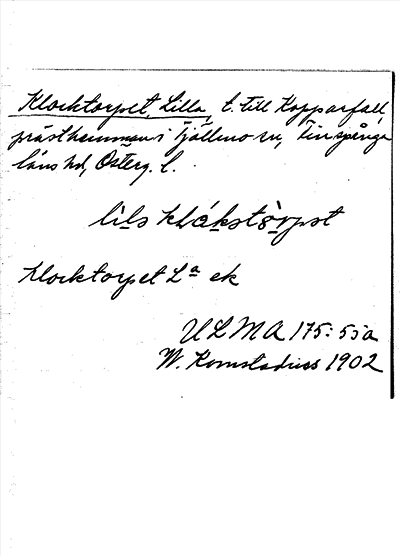 Klocktorpet, Lilla, t. till Kopparfall,
prästhemman i Tjällmo sn, Finspånga
läns hd, Österg. l.
lils klákstòrpst
Klocktorpet La ek
ULMA 175: 55a
W. Komstadius 1902